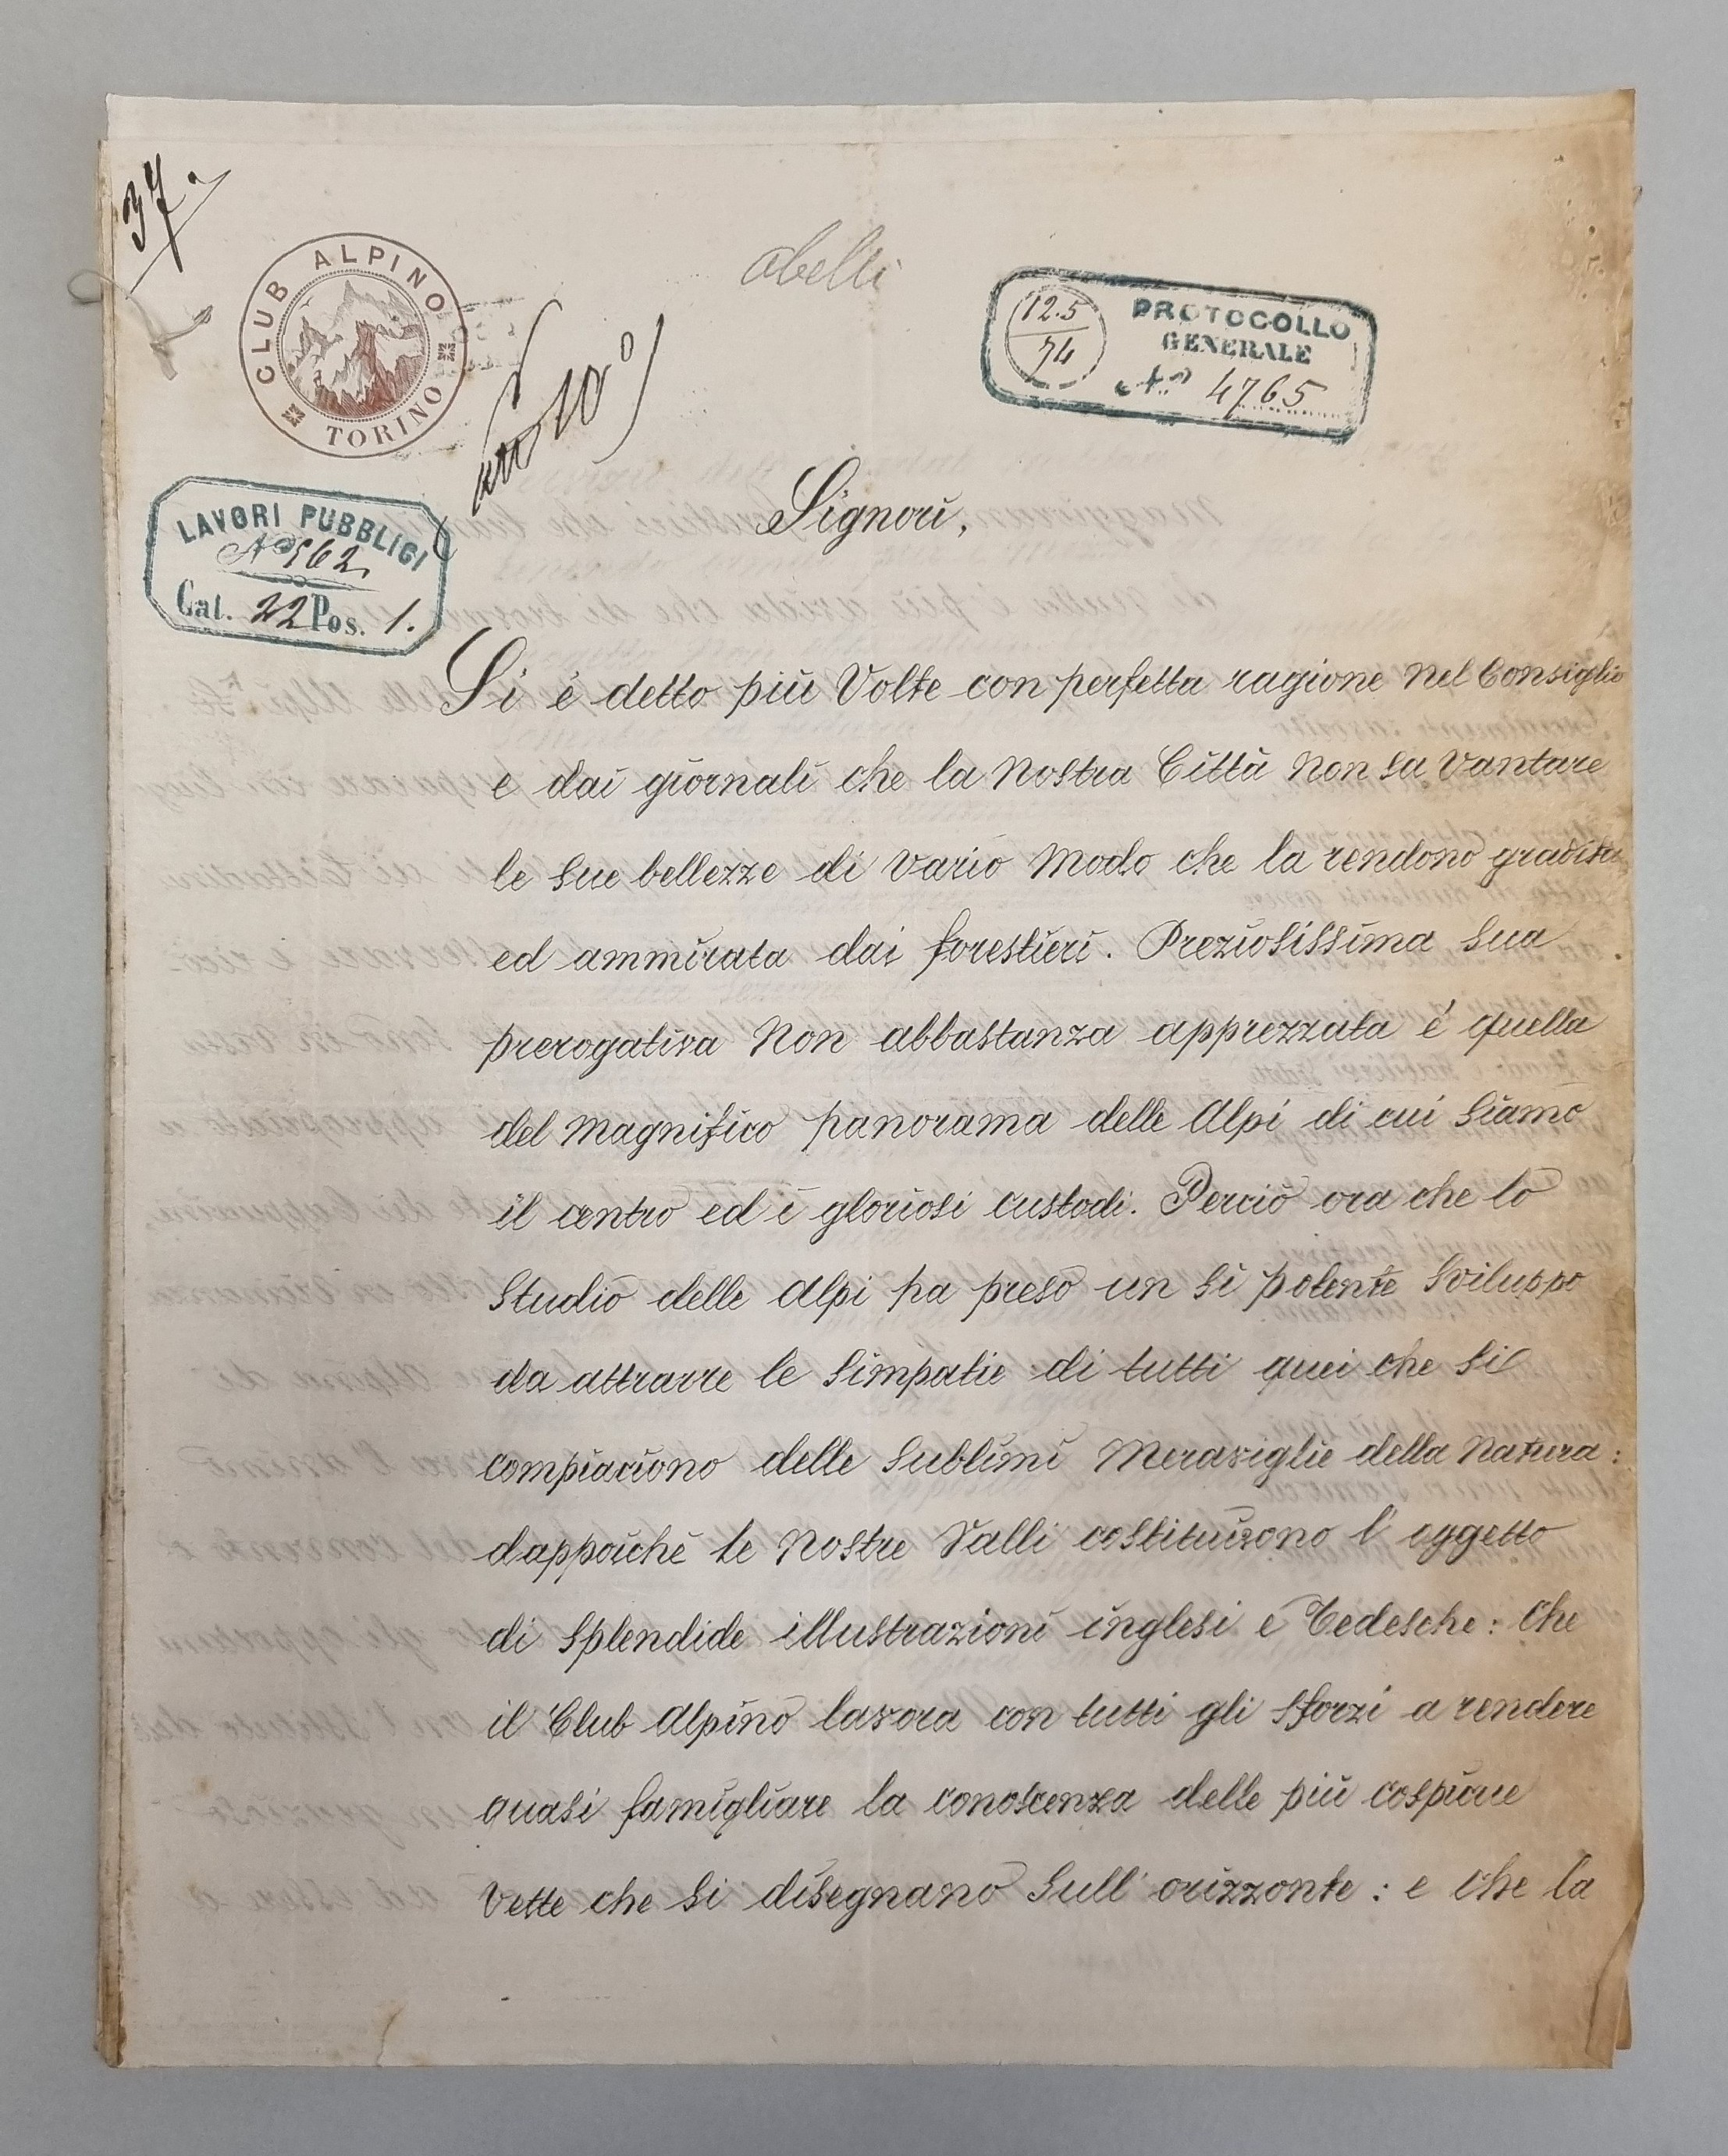 37.
CLUB ALPINO
TORINO
abelli
12.5
74
PROTOCOLLO
GENERALE
No 4765
LAVORI PUBBLICI
No 962
Cat. 22 Pos. 1.
Signori,
Si è detto più Volte con perfetta ragione nel Consiglio
e dai giornali che la Nostra Città Non sa Vantare
le sue bellezze di vario Modo che la rendono gradita
ed ammirata dai forestieri. Preziosissima sua
prerogativa Non abbastanza apprezzata è quella
del magnifico panorama delle Alpi di cui siamo
il centro ed i gloriosi custodi. Perciò ora che lo
Studio delle Alpi ha preso un sì potente sviluppo
da attrarre le simpatie di tutti quei che si
compiaciono delle sublimi Meraviglie della Natura:
dappoichè le Nostre Valli costituisono l'oggetto
di splendide illustrazioni inglesi e Tedesche: che
il Club Alpino lavora con tutti gli sforzi a rendere
quasi famigliare la conoscenza delle più cospicue
Vette che si disegnano sull'orizzonte: e che la